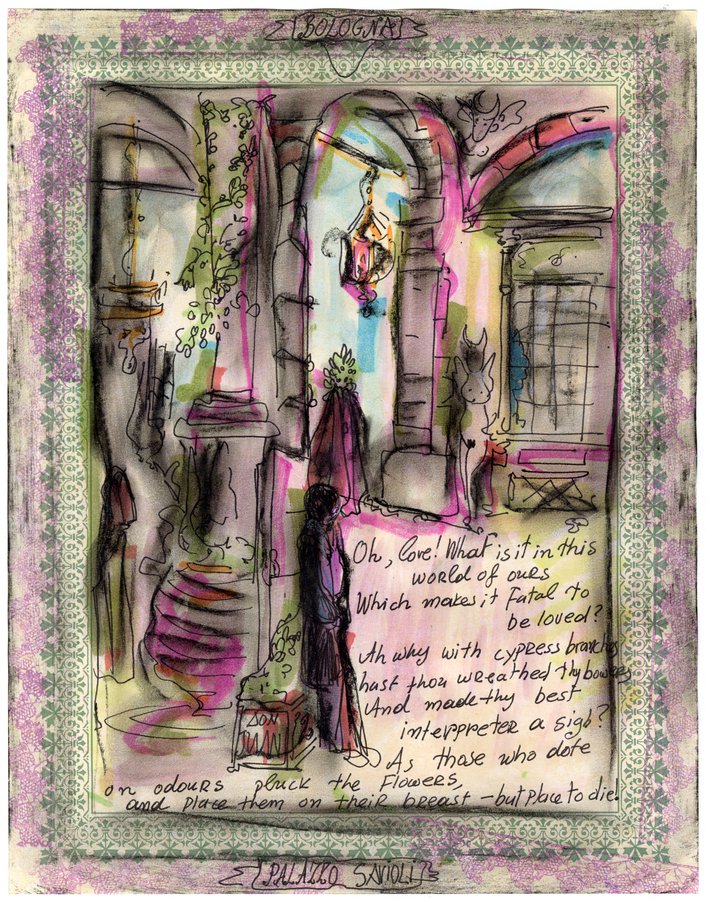 [BOLOGNA]
Oh, love! What is it in this
world of ours
Which makes it Fatal to
be loved?
Ah why with cypress branches
hast thou wreathed thy bowers
And made thy best
interpreter a sigh?
As those who dote
on odours pluck the Flowers,
and place them on their breast – but place to die!
DON
JUAN
[PALAZZO SAVIOLI]